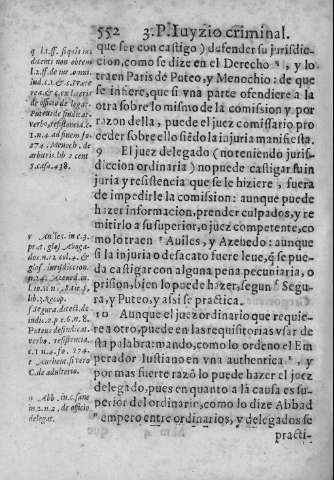 552 3.P. Iuyzio criminal.
que ser con castigo) defender su jurisdic-
cion, como se dize en el Derecho, y lo
traen Paris de Puteo, y Menochio: de que
se infiere, que si vna parte ofendiere a la
otra sobre lo mismo de la comision y por
razon della, puede el juez comissario pro
ceder sobre ello siẽdo la injuria manifiesta.
9 El juez delegado (no teniendo juris-
diccion ordinaria) no puede castigar su in
juria y resistencia que se le hiziere, fuera
de impedirle la comision: aunque puede
hazer informacion, prender culpados, y re
mitirlo a su superior, o juez competente, co
mo lo traen Auiles, y Azebedo: aunque
si la injuria o desacato fuere leue, q̃ se pue-
da castigar con alguna pena pecuniaria, o
prision, bien lo puede hazer, segun Segu-
ra, y Puteo, y assi se practica.
10 Aunque el juez ordinario que requie-
re a otro, puede en las requisitorias vsar de
sta palabra: mando, como lo ordeno el Em
perador Iustiano en vna authentica, y
por mas fuerte razõ lo puede hazer el juez
delegado, pues en quanto a la causa es su-
perior del ordinario, como lo dize Abbad
empero entre ordinarios, y delegados se
practi-
dicenti non obem.
de officio de legat.
verbo, resistencia,
1. n. 4. ad finem fo.
274. Menoch. de
arbitris lib. 2 cent
5. caso. 438.
y Auiles. in c. 3.
præt. glos Aboga-
dos. n. 12. cul. 4. &
glos. jurisdiccion.
Segura. direct. de
Puteus de sindicat.
verbo, resistencia,
c. 1. n. 4. fo. 274.
C. de adulterio.
in 2. n. 2. de officio
delegat.